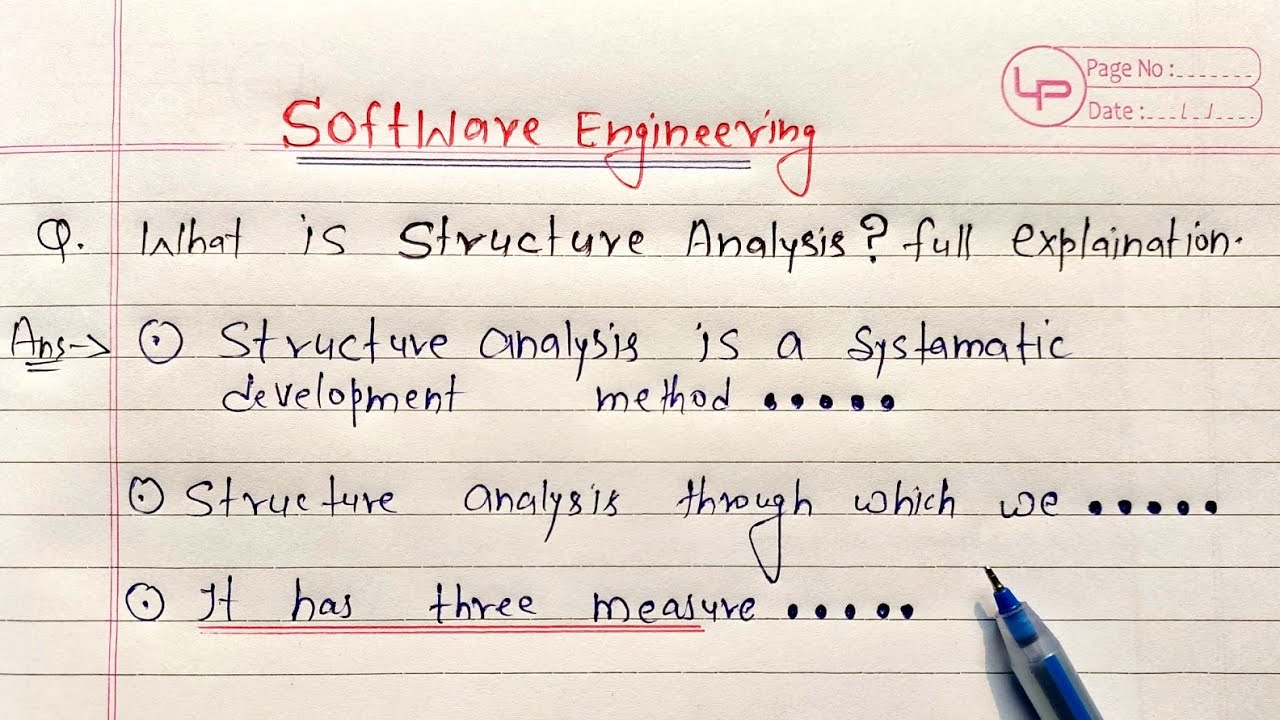 LP
Page No :.......
Date :...../..../.....
Software Engineering
Q. What is Structure Analysis? full explaination.
Ans→ ⊙ Structure analysis is a systamatic
development method •••••
⊙ Structure analysis through which we •••••
⊙ It has three measure •••••